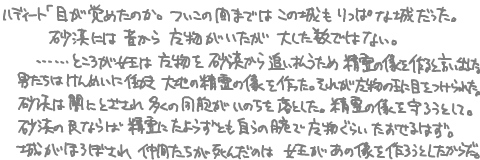 ハディート「目が覚めたのか。ついこの間までは この城も りっぱな城だった。
砂漠には 昔から 魔物がいたが 大した数ではない。
……ところが女王は 魔物を 砂漠から 追い払うため 精霊の像を作ると言い出した
男たちは けんめいに 仕え 大地の精霊の像を作った。それが魔物の王に目をつけられた。
砂漠は 闇に とざされ 多くの 同胞が いのちを 落とした。精霊の像を守ろうとして。
砂漠の民ならば 精霊に たよらずとも 自らの腕で 魔物ぐらい たおせるはず。
城がほろぼされ 仲間たちが 死んだのは 女王が あの像を 作ろうとしたからだ。